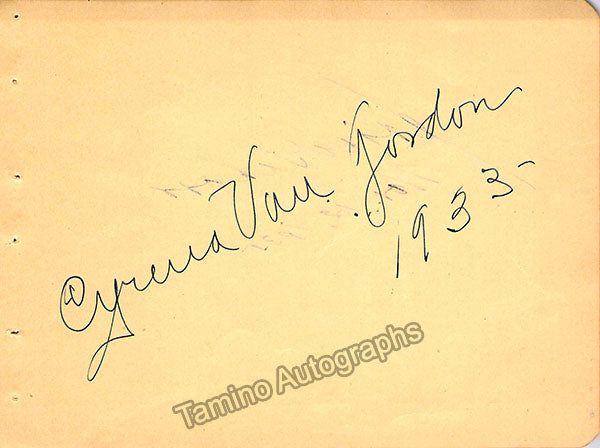 Cyrena Van Gordon
1933-
Tamino Autographs